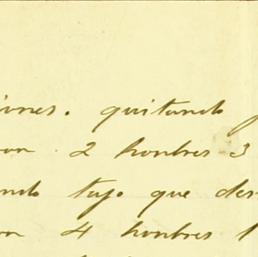 iones. quitando
on 2 hombres 3
ando tajo que des
on 4 hombres 1